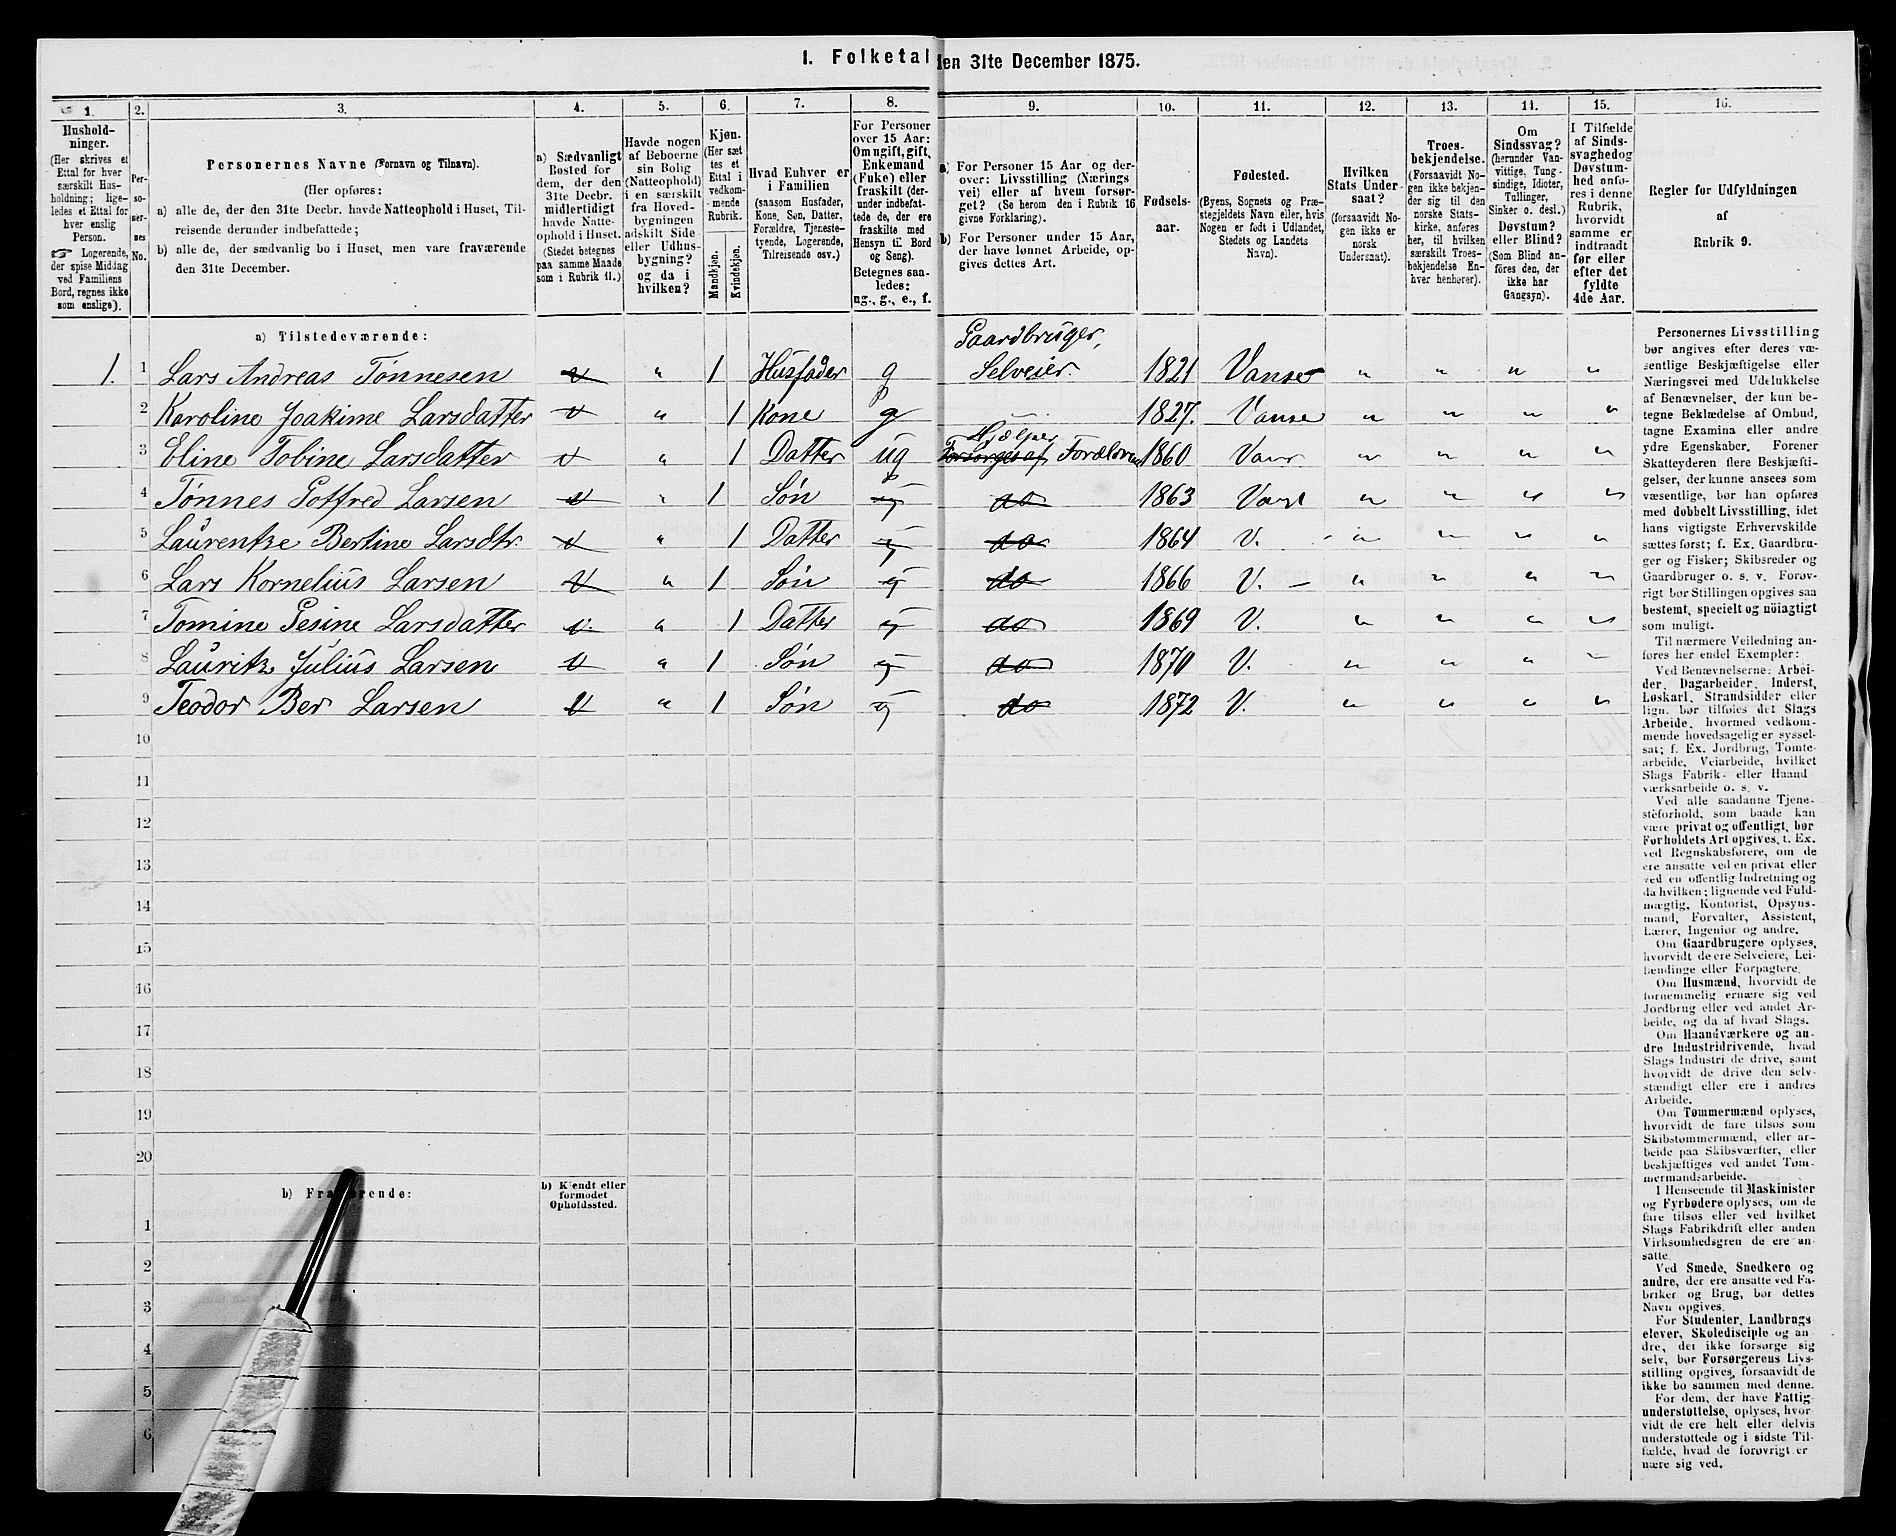 I. Folketal den 31te December 1875.
1. 2. 3. 4. 5. 6. 7. 8. 9. 10. 11. 12. 13. 14. 15. 16.
Hushold-
ninger.
(Her skrives et
Ettal for hver
særskilt Hus-
holdning; lige-
ledes et Ettal for
hver enslig
Person.
☞ Logerende,
der spise Middag
ved Familiens
Bord, regnes ikke
som enslige).
Per-
so-
ner-
nes
No.
Personernes Navne (Fornavn og Tilnavn).
(Her opføres:
a) alle de, der den 31te Decbr. havde Natteophold i Huset, Til-
reisende derunder indbefattede;
b) alle de, der sædvanlig bo i Huset, men vare fraværende
den 31te December.
a) Sædvanligt
Bosted for
dem, der den
31te Decbr.
midlertidigt
havde Natte-
ophold i Huset.
(Stedet betegnes
paa samme Maade
som i Rubrik 11.)
Havde nogen
af Beboerne
sin Bolig
(Natteophold)
i en særskilt
fra Hoved-
bygningen
adskilt Side-
eller Udhus-
bygning?
og da i
hvilken?
Kjøn.
(Her sæt-
tes et
Ettal i
vedkom-
mende
Rubrik.
Mandkjøn.
Kvindekjøn.
Hvad Enhver er
i Familien
(saasom Husfader,
Kone, Søn, Datter,
Forældre, Tjeneste-
tyende, Logerende,
Tilreisende osv.)
For Personer
over 15 Aar:
Om ugift, gift,
Enkemand
(Enke) eller
fraskilt (der-
under indbefat-
tede de, der ere
fraskilte med
Hensyn til Bord
og Seng).
Betegnes saa-
ledes:
ug., g., e., f.
a) For Personer 15 Aar og der-
over: Livsstilling (Nærings-
vei) eller af hvem forsør-
get? (Se herom den i Rubrik 16
givne Forklaring).
b) For Personer under 15 Aar,
der have lønnet Arbeide, op-
gives dettes Art.
Fødsels-
aar.
Fødested.
(Byens, Sognets og Præ-
stegjeldets Navn eller, hvis
Nogen er født i Udlandet,
Stedets og Landets
Navn).
Hvilken
Stats Under-
saat?
(forsaavidt No-
gen ikke er
norsk
Undersaat).
Troes-
bekjendelse.
(Forsaavidt No-
gen ikke bekjen-
der sig til den
norske Stats-
kirke, anføres
her, til hvilken
særskilt Troes-
bekjendelse En-
hver henhører).
Om
Sindssvag?
(herunder Van-
vittige, Tung-
sindige, Idioter,
Tullinger,
Sinker o. desl.)
Døvstum?
eller Blind?
(Som Blind an-
føres den, der
ikke har
Gangsyn).
I Tilfælde
af Sinds-
svaghed og
Døvstum-
hed anfø-
res i denne
Rubrik,
hvorvidt
samme er
indtraadt
før eller
efter det
fyldte
4de Aar.
Regler for Udfyldningen
af
Rubrik 9.
a) Tilstedeværende:
Gaardbruger,
1. 1 Lars Andreas Tønnesen v " 1 Husfader g Selveier. 1821 Vanse " " " "
2 Karoline Joakime Larsdatter v " 1 Kone g 1827. Vanse " " " "
Hjælper
3 Eline Tobine Larsdatter v " 1 Datter ug Forsørges af Forældrene 1860 Vans " " " "
4 Tønnes Gotfred Larsen v " 1 Søn ug do 1863 Vans " " " "
5 Laurentze Bertine Larsdtr. v " 1 Datter ug do 1864 V. - " " " "
6 Lars Kornelius Larsen v " 1 Søn ug do 1866 V. - " " " "
7 Tomine Gesine Larsdatter v " 1 Datter ug do 1869 V. " " " "
8 Lauritz Julius Larsen v " 1 Søn ug do 1870 V. " " " "
9 Teodor Ber Larsen v " 1 Søn ug do 1872 V. " " " "
10
11
12
13
14
15
16
17
18
19
20
b) Fraværende:
b) Kjendt eller
formodet
Opholdssted.
1
2
3
4
5
6
Personernes Livsstilling
bør angives efter deres væ-
sentlige Beskjæftigelse eller
Næringsvei med Udelukkelse
af Benævnelser, der kun be-
tegne Beklædelse af Ombud,
tagne Examina eller andre
ydre Egenskaber. Forener
Skatteyderen flere Beskjæfti-
gelser, der kunne ansees som
væsentlige, bør han opføres
med dobbelt Livsstilling, idet
hans vigtigste Erhvervskilde
sættes først; f. Ex. Gaardbru-
ger og Fisker; Skibsreder og
Gaardbruger o. s. v. Forøv-
rigt bør Stillingen opgives saa
bestemt, specielt og nöiagtigt
som muligt.
Til nærmere Veiledning an-
føres her endel Exempler:
Ved Benævnelserne: Arbei-
der, Dagarbeider, Inderst,
Løskarl, Strandsidder eller
lign. bør tilføies det Slags
Arbeide, hvormed vedkom-
mende hovedsagelig er syssel-
sat; f. Ex. Jordbrug, Tomte-
arbeide, Veiarbeide, hvilket
Slags Fabrik- eller Haand-
værksarbeide o. s. v.
Ved alle saadanne Tjene-
steforhold, som baade kan
være privat og offentligt, bør
Forholdets Art opgives, t. Ex.
ved Regnskabsførere, om de
ere ansatte ved en privat eller
ved en offentlig Indretning og
da hvilken; lignende ved Fuld-
mægtig, Kontorist, Opsyns-
mand, Forvalter, Assistent,
Lærer, Ingeniør og andre.
Om Gaardbrugere oplyses,
hvorvidt de ere Selveiere, Lei-
lændinge eller Forpagtere.
Om Husmænd, hvorvidt de
fornemmelig ernære sig ved
Jordbrug eller ved andet Ar-
beide, og da af hvad Slags.
Om Haandværkere og an-
dre Industridrivende, hvad
Slags Industri de drive, samt
hvorvidt de drive den selv-
stændigt eller ere i andres
Arbeide.
Om Tømmermænd oplyses,
hvorvidt de fare tilsøs som
Skibstømmermænd, eller ar-
beide paa Skibsværfter, eller
beskjæftiges ved andet Tøm-
mermandsarbeide.
I Henseende til Maskinister
og Fyrbødere oplyses, om de
fare tilsøs eller ved hvilket
Slags Fabrikdrift eller anden
Virksomhedsgren de ere an-
satte.
Ved Smede, Snedkere og
andre, der ere ansatte ved Fa-
briker og Brug, bør dettes
Navn opgives.
For Studenter, Landbrugs-
elever, Skoledisciple og an-
dre, der ikke forsørge sig
selv, bør Forsørgerens Livs-
stilling opgives, forsaavidt de
ikke bo sammen med denne.
For dem, der have Fattig-
understøttelse, oplyses, hvor-
vidt de ere helt eller delvis
understøttede og i sidste Til-
fælde, hvad de forøvrigt er-
nære sig ved.